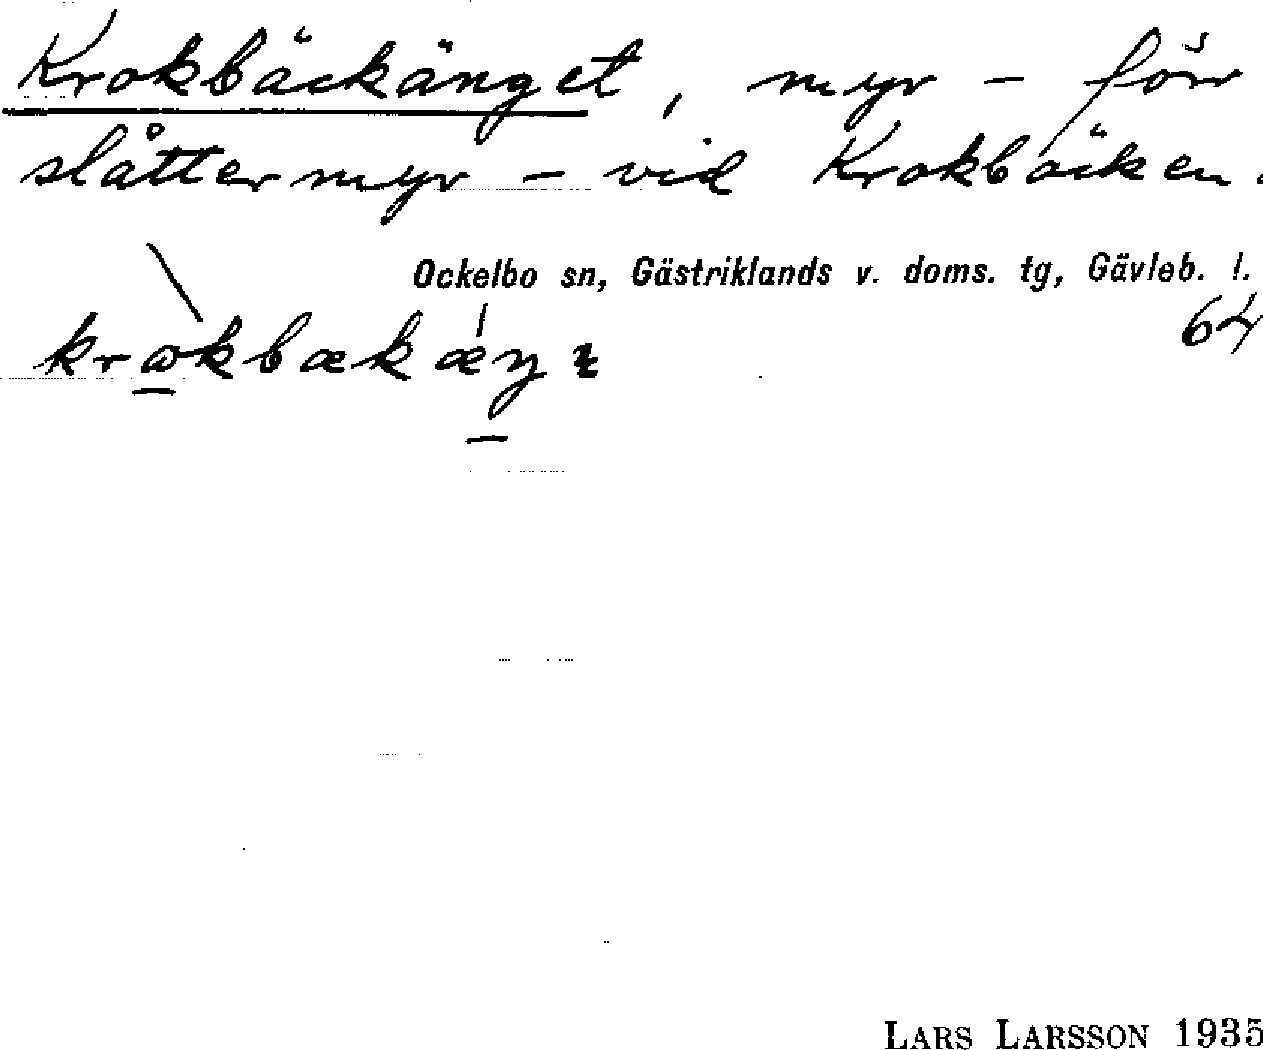 Krokbäckänget, myr - förr
slåttermyr - vid Krokbäcken.
Ockelbo sn, Gästriklands v. doms. tg, Gävleb. l.
64
LARS LARSSON 1935